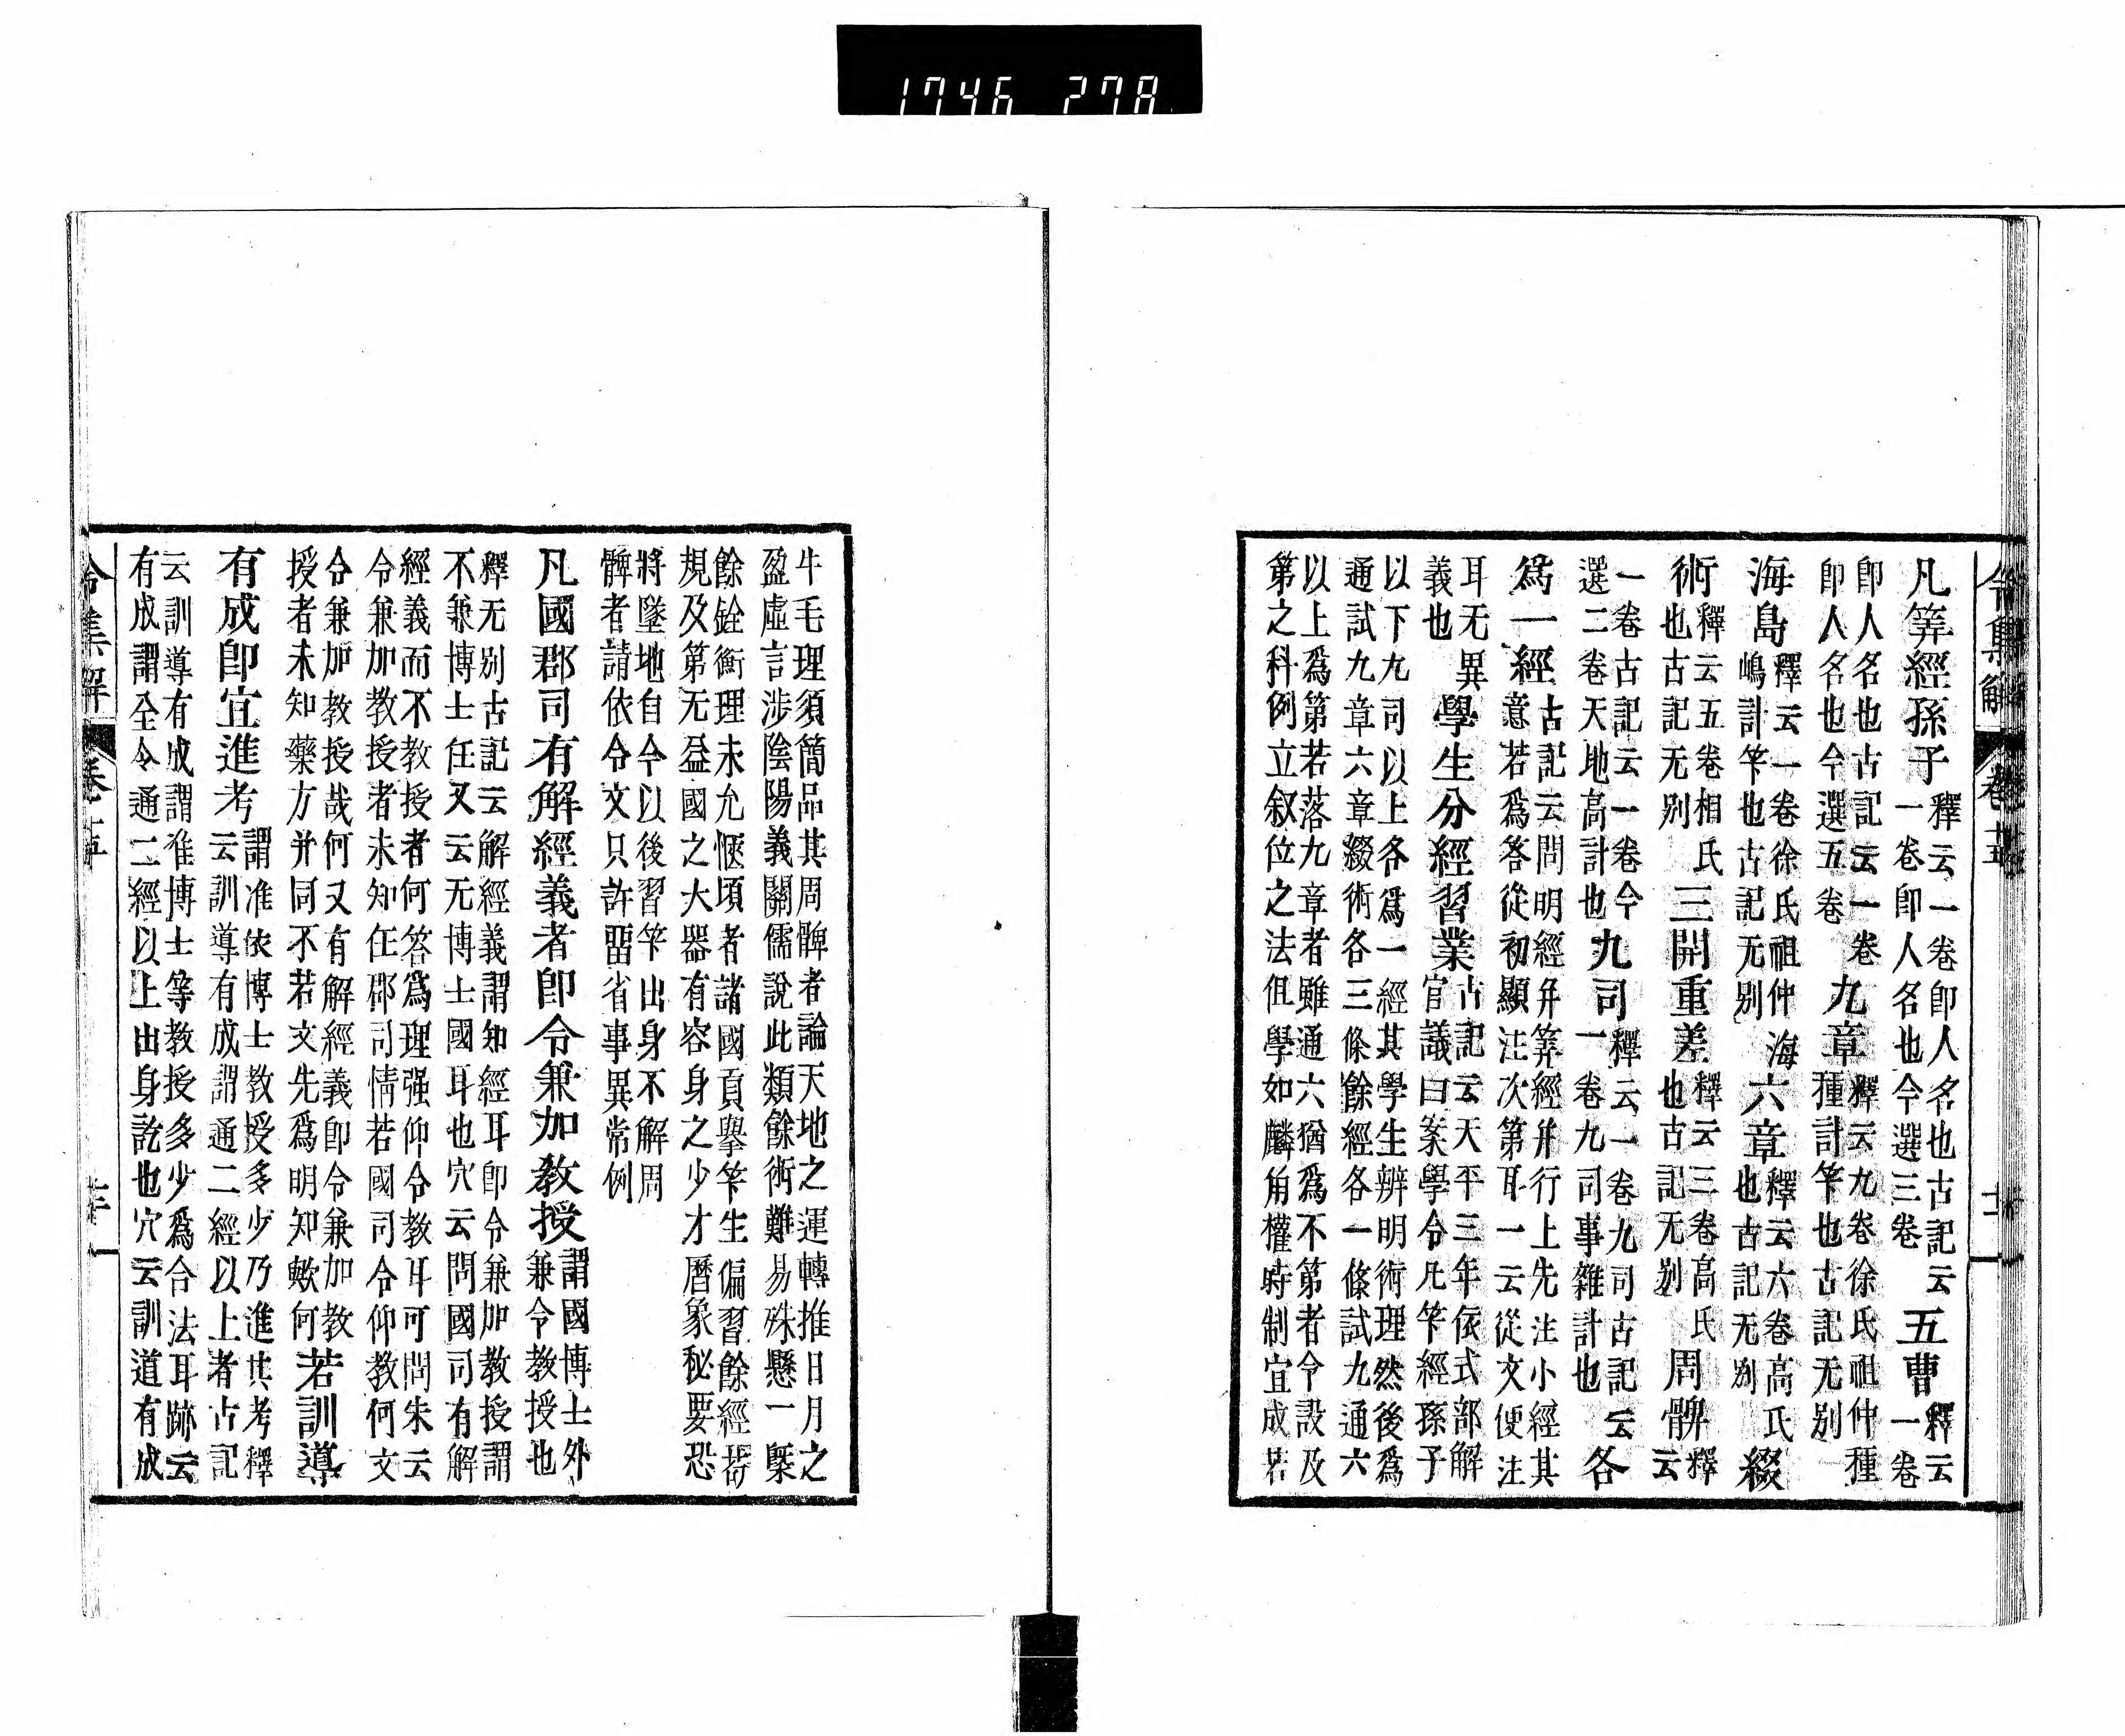 令集解 卷十五
凡筭經孫子釋云一卷即人名也古記云一卷即人名也今選三卷五曹釋云一卷
即人名也古記云一卷即人名也今選五卷九章釋云九卷徐氏祖仲種種計竿也古記无別
海島釋云一卷徐氏祖仲海嶋計竿也古記无別六章釋云六卷高氏也古記无別綴
術釋云五卷相氏也古記无別三開重差釋云三卷高氏也古記无別周髀釋云
一卷古記云一卷今選二卷天地高計也九司釋云一卷九司古記云一卷九司事雜計也各
爲一經古記云問明經并筭經并行上先注小經其意若爲答從初顯注次第耳一云從文便注
耳无異義也學生分經習業古記云天平三年依式部解官議曰案學令凡竿經孫子
以下九司以上各爲一經其學生辨明術理然後爲
通試九章六章綴術各三條餘經各一條試九通六
以上爲第若落九章者雖通六猶爲不第者令設及
第之科例立叙位之法但學如麟角權時制宜成若
牛毛理須簡品其周髀者論天地之運轉推日月之
盈虛言涉陰陽義關儒說此類餘術難易殊懸一槩
餘銓衡理未允愜頃者諸國貢擧竿生偏習餘經苟
規及第无益國之大器有容身之少才曆象秘要恐
將墜地自今以後習竿出身不解周
髀者請依令文只許留省事異常例
凡國郡司有解經義者即令兼加教授謂國博士外兼令教授也
釋无別古記云解經義謂知經耳即令兼加教授謂
不兼博士任又云无博士國耳也穴云問國司有解
經義而不教授者何答爲理强仰令教耳可問朱云
令兼加教授者未知任郡司情若國司令仰教何文
令兼加教授哉何又有解經義即令兼加教
授者未知藥方并同不若文先爲明知歟何若訓導
有成即宜進考謂准依博士教授多少乃進其考釋云訓導有成謂通二經以上者古記
云訓導有成謂准博士等教授多少爲合法耳跡云
有成謂全令通二經以上出身訖也穴云訓道有成
令集解 卷十五
1746 278